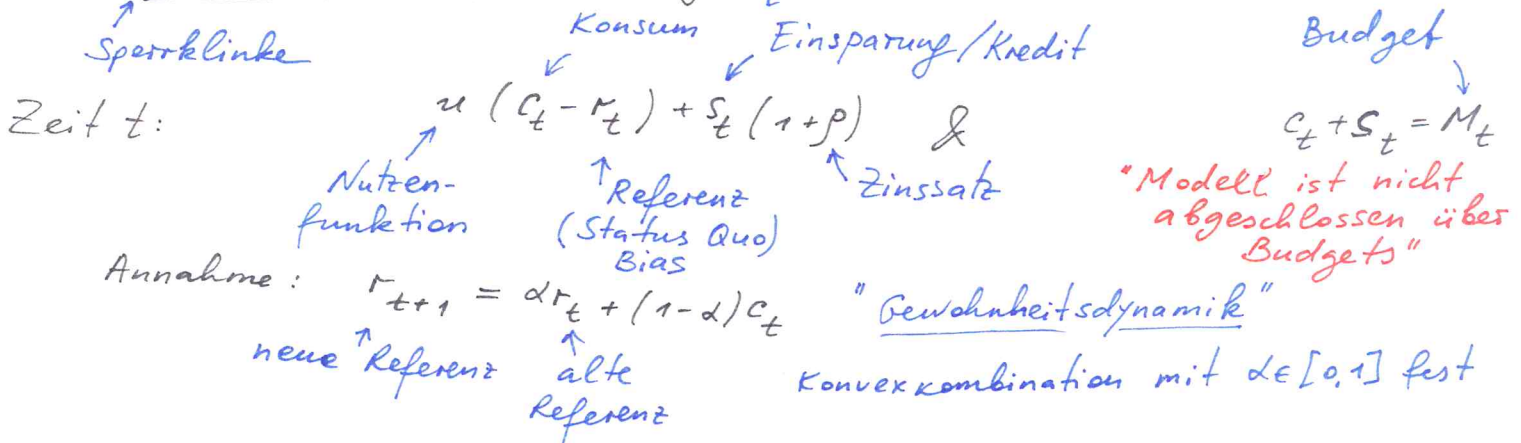 Sperrklinke
Konsum
Einsparung/Kredit
Budget
Zeit t: u (c_t - r_t) + s_t (1+ρ) & c_t + s_t = M_t
Nutzen-
funktion
Referenz
(Status Quo)
Bias
Zinssatz
"Modell ist nicht
abgeschlossen über
Budgets"
Annahme: r_{t+1} = αr_t + (1-α)c_t "Gewohnheitsdynamik"
neue Referenz
alte
Referenz
Konvexkombination mit α∈[0,1] fest